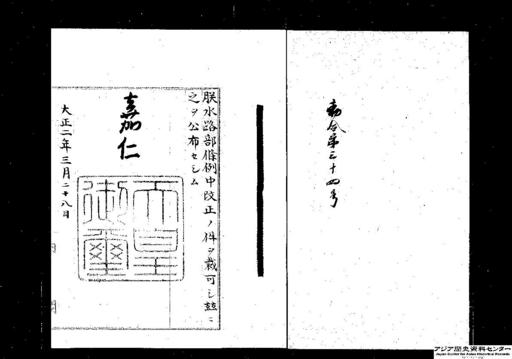 勅令第三十四号
朕水路部條例中改正ノ件ヲ裁可シ茲ニ
之ヲ公布セシム
嘉仁
天皇
御璽
大正二年三月二十八日
アジア歴史資料センター
Japan Center for Asian Historical Records